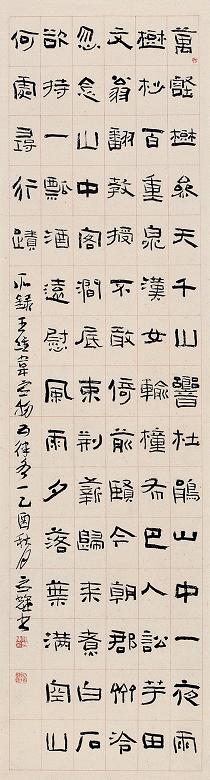 萬壑樹參天千山響杜鵑山中一夜雨
樹杪百重泉漢女輸橦布巴人訟芋田
文翁翻教授不敢倚前賢今朝郡州冷
忽念山中客澗底束荊薪歸來煮白石
欲持一瓢酒遠慰風雨夕落葉滿空山
何處尋行蹟
右錄王維韋應物五律各一乙酉秋月